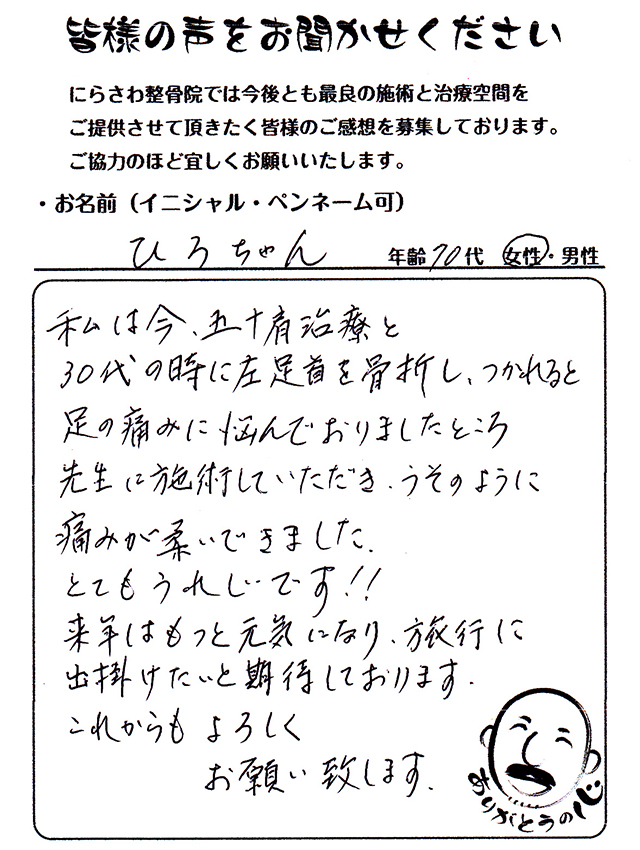 皆様の声をお聞かせください
にらさわ整骨院では今後とも最良の施術と治療空間を
ご提供させて頂きたく皆様のご感想を募集しております。
ご協力のほど宜しくお願いいたします。
・お名前（イニシャル・ペンネーム可）
ひろちゃん 年齢70代 女性・男性
私は今、五十肩治療と
30代の時に左足首を骨折し、つかれると
足の痛みに悩んでおりましたところ
先生に施術していただき、うそのように
痛みが柔いできました。
とてもうれしいです!!
来年はもっと元気になり、旅行に
出掛けたいと期待しております。
これからもよろしく
お願い致します。
ありがとうの心